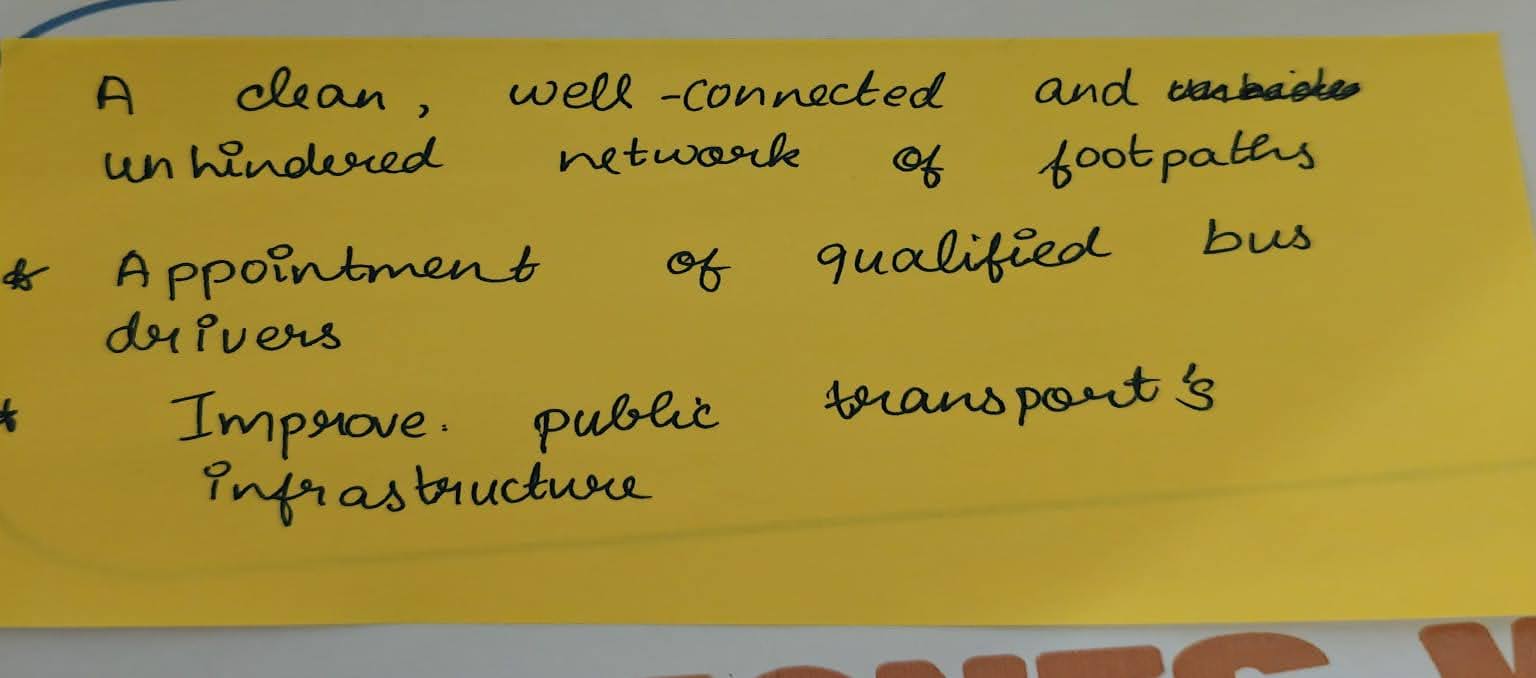 A clean, well-connected and
unhindered network of footpaths
* Appointment of qualified bus
drivers
* Improve. public transport's
infrastructure